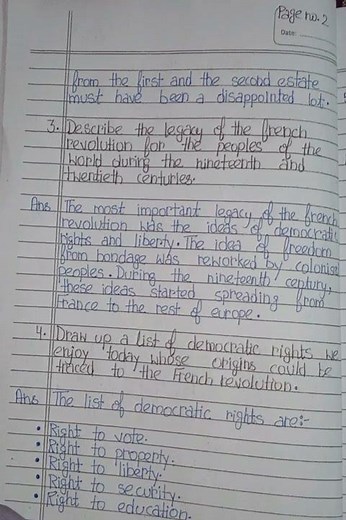 Page no. 2
Date:
from the first and the second estate
must have been a disappointed lot.
3. Describe the legacy of the french
revolution for the peoples of the
world during the nineteenth and
twentieth centuries.
Ans The most important legacy of the french
revolution was the ideas of democratic
rights and liberty. The idea of freedom
from bondage was reworked by colonise
peoples. During the nineteenth century,
these ideas started spreading from
france to the rest of europe.
4. Draw up a list of democratic rights we
enjoy today whose origins could be
traced to the French revolution.
Ans The list of democratic rights are:-
• Right to vote.
• Right to property.
• Right to liberty.
• Right to security.
• Right to education.